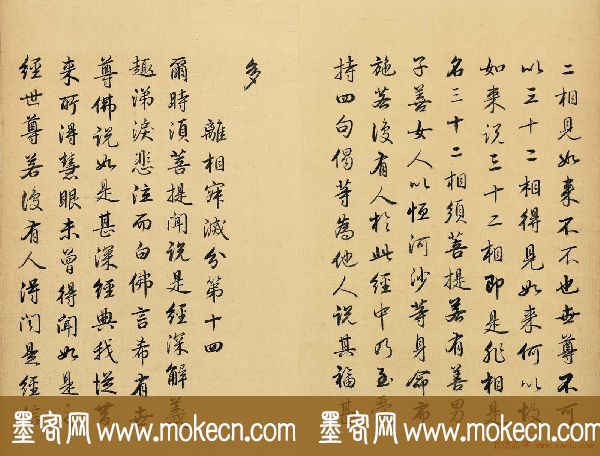 二相見如来不不也世尊不可
以三十二相得見如来何以故
如来说三十二相即是非相是
名三十二相須菩提若有善男
子善女人以恒河沙等身命布
施若復有人於此經中乃至受
持四句偈等為他人说其福甚
多
離相寂滅分第十四
爾時須菩提聞说是經深解義
趣涕淚悲泣而白佛言希有世
尊佛说如是甚深經典我從昔
来所得慧眼未曾得聞如是
經世尊若復有人得聞是經
墨客网 www.mokecn.com 墨客网 www.mokecn.com